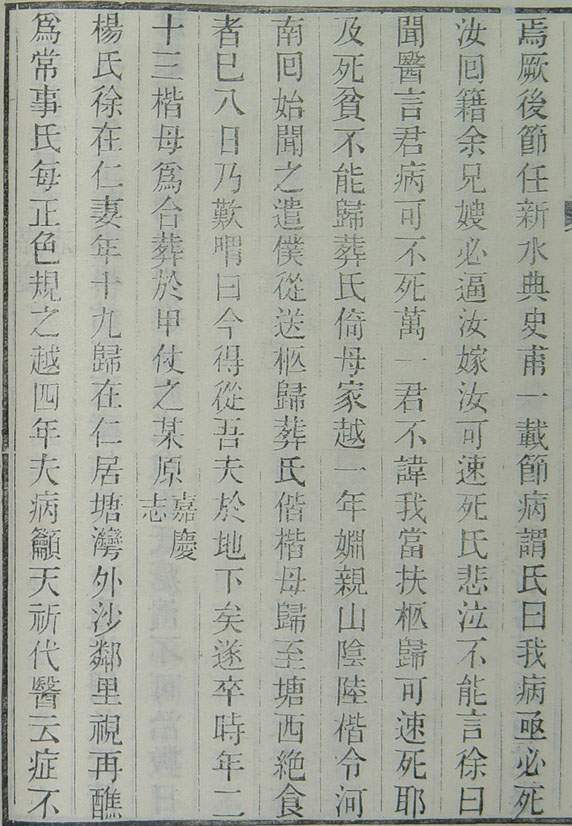 焉厥後節任新水典史甫一載節病謂氏曰我病亟必死
汝回籍余兄嫂必逼汝嫁汝可速死氏悲泣不能言徐曰
聞醫言君病可不死萬一君不諱我當扶柩歸可速死耶
及死貧不能歸葬氏倚母家越一年姻親山陰陸楷令河
南回始聞之遣僕從送柩歸葬氏偕楷母歸至塘西絶食
者已八日乃歎喟曰今得從吾夫於地下矣遂卒時年二
十三楷母爲合葬於甲仗之某原嘉慶志
楊氏徐在仁妻年十九歸在仁居塘灣外沙鄰里視再醮
爲常事氏每正色規之越四年夫病籲天祈代醫云症不